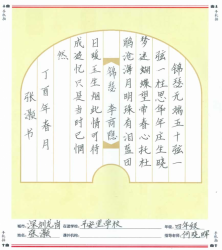 锦瑟无端五十弦一
弦一柱思华年庄生晓
梦迷蝴蝶望帝春心托杜
鹃沧海月明珠有泪蓝田
锦瑟 李商隐
日暖玉生烟此情可待
成追忆只是当时已惘
然
丁酉年春月
张灏书
深圳龙岗
平安里学校
四年级
张灏
何晓晖